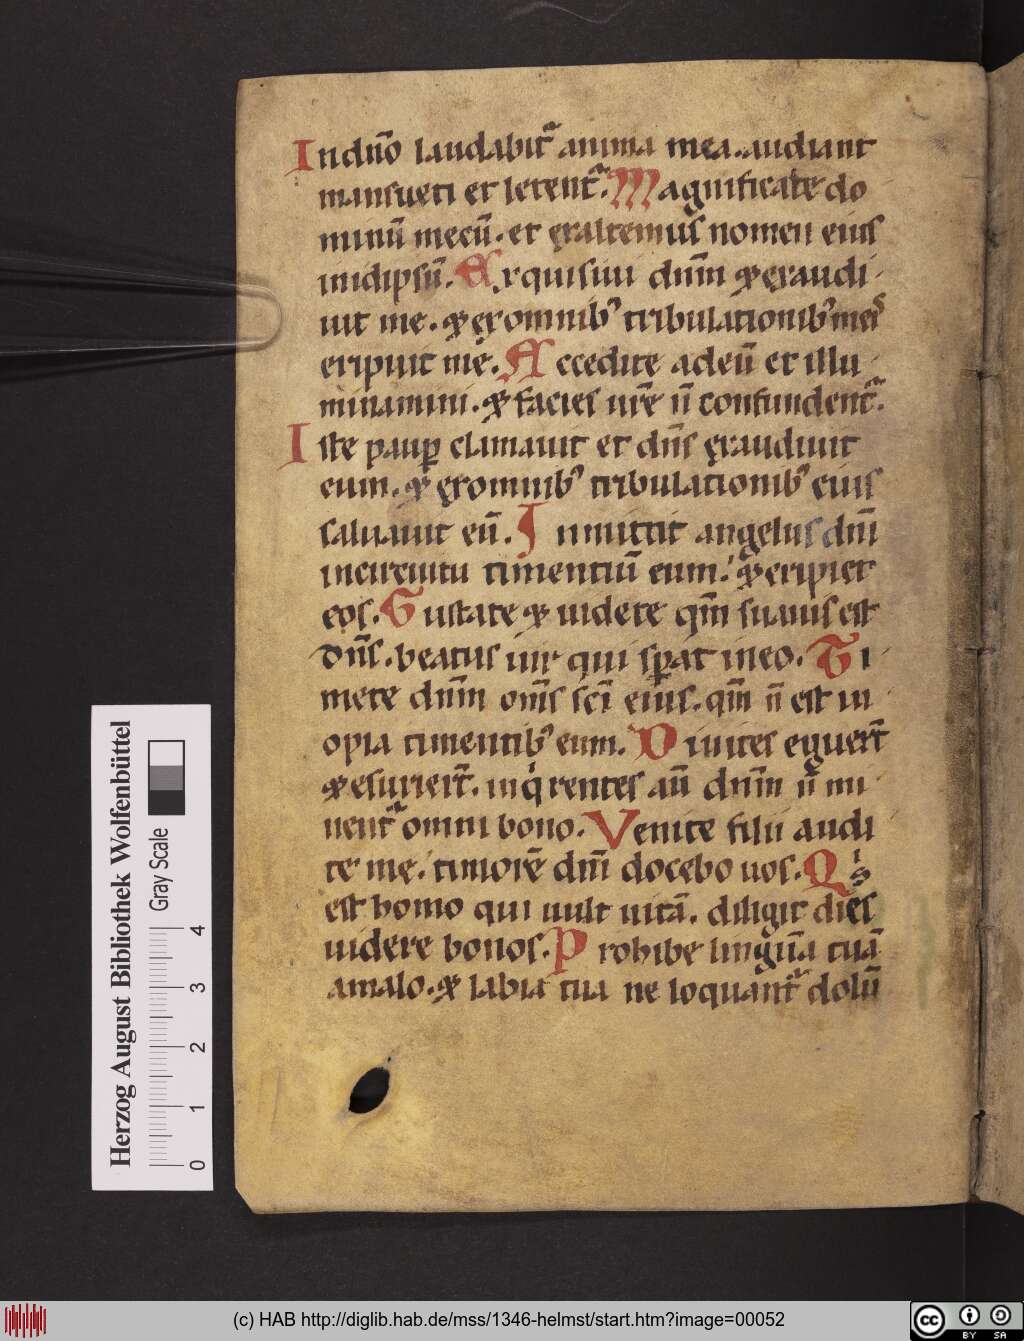 In dño laudabit᷑ anima mea. audiant
mansueti et letent᷑. Magnificate do
minũ mecũ. et exaltemus nomen eius
inidipsũ. Exquisiui dñm ⁊ exaudi
uit me. ⁊ ex omnib᷒ tribulationib᷒ meis
eripuit me. Accedite ad eũ et illu
minamini. ⁊ facies ur̃e ñ confundent᷑.
Iste paup̲ clamauit et dñs exaudiuit
eum. ⁊ ex omnib᷒ tribulationib᷒ eius
saluauit eũ. Inmittit angelus dñi
incircuitu timentiũ eum. ⁊ eripiet
eos. Gustate ⁊ uidete qm̃ suauis est
Dñs. beatus uir qui sp̲at in eo. Ti
mete dñm om̃s sc̃i eius. qm̃ ñ est in
opia timentib᷒ eum. Diuites eguer̃t
⁊ esurier̃t. inq̇rentes aũ dñm ñ mi
nuent᷑ omni bono. Venite filii audi
te me. timorẽ dñi docebo uos. Qis
est homo qui uult uitã. diligit dies
uidere bonos. Prohibe linguã tuã
amalo. ⁊ labia tua ne loquant᷑ dolũ
Herzog August Bibliothek Wolfenbüttel
Gray Scale
0 1 2 3 4
(c) HAB http://diglib.hab.de/mss/1346-helmst/start.htm?image=00052
cc BY SA